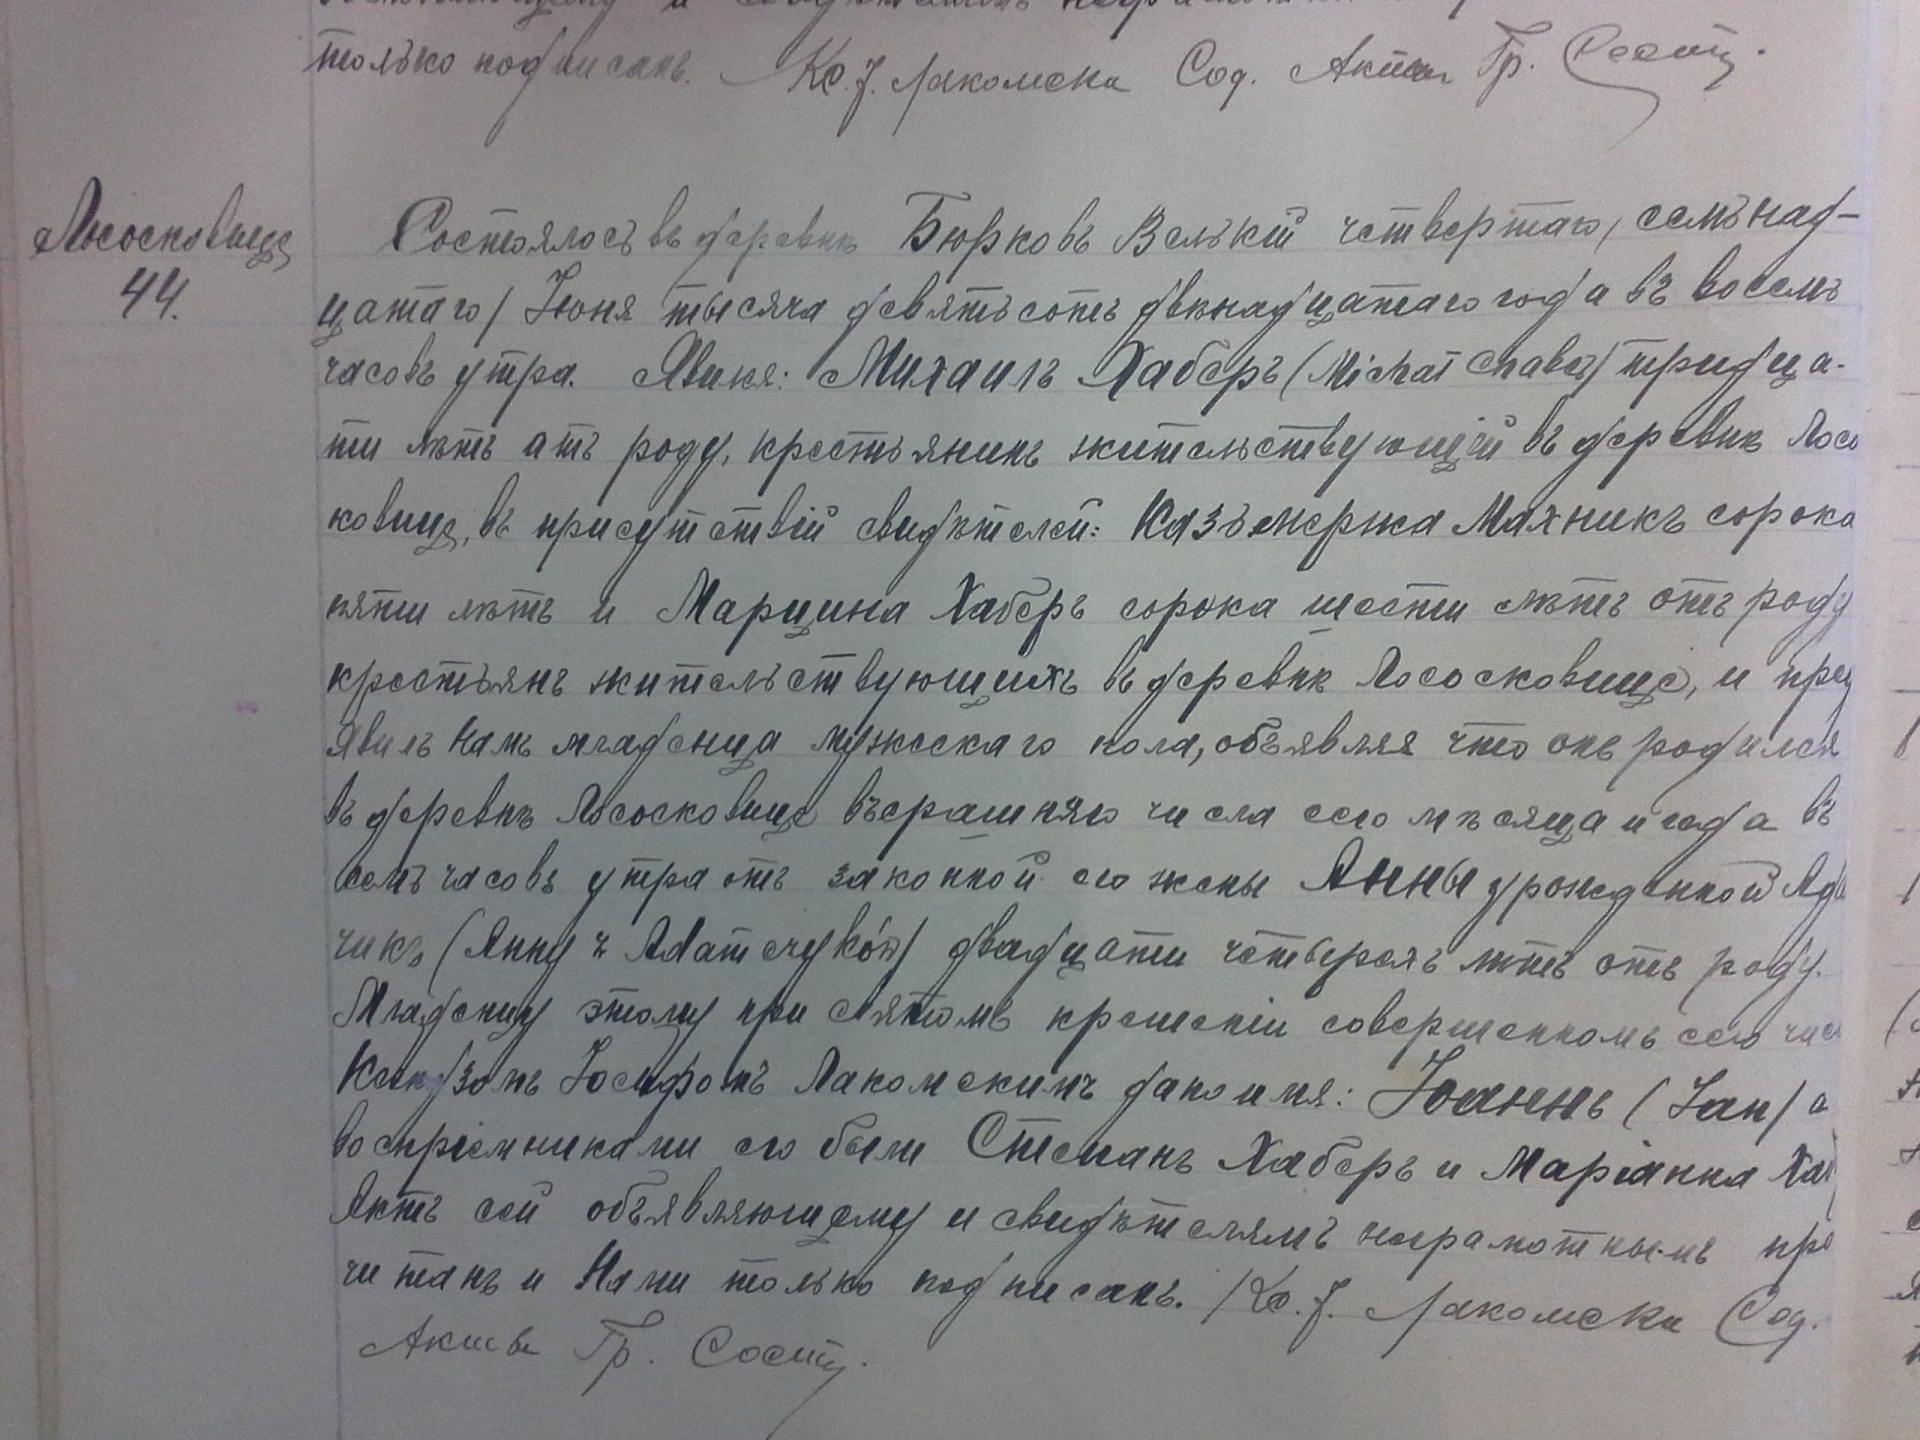 только подписанъ. Кс. J. Лакомски Сод. Актов Гр. Сост.
Лососковице
44.
Состоялось въ деревнѣ Бюрковъ Велькій четвертаго /семьнад-
цатаго/ Іюня тысяча девятьсотъ двѣнадцатаго года въ восемь
часовъ утра. Явился: Михаилъ Хаберъ (Michał Chaber) тридца-
ти лѣтъ отъ роду, крестьянинъ жительствующій въ деревнѣ Лосо
ковице, въ присутствій свидѣтелей: Казъмержа Махникъ сорока
пяти лѣтъ и Марцина Хаберъ сорока шести лѣтъ отъ роду
крестьянъ жительствующихъ въ деревнѣ Лососковице, и пред
явилъ Намъ младенца мужескаго пола, объявляя что онъ родился
въ деревнѣ Лососковице вчерашняго числа сего мѣсяца и года въ
семь часовъ утра отъ законной его жены Анны урожденной Ада
чикъ (Anny z Adamczyków) двадцати четырехъ лѣтъ отъ роду.
Младенцу этому при святомъ крещеніи совершенномъ сего чис
Ксендзомъ Іосифомъ Лакомскимъ дано имя: Іоаннъ (Jan) а
воспріемниками его были Стефанъ Хаберъ и Маріанна Хаб
Актъ сей объявляющему и свидѣтелямъ неграмотнымъ про
читанъ и Нами только подписанъ. Кс. J. Лакомски Сод.
Актовъ Гр. Сост.